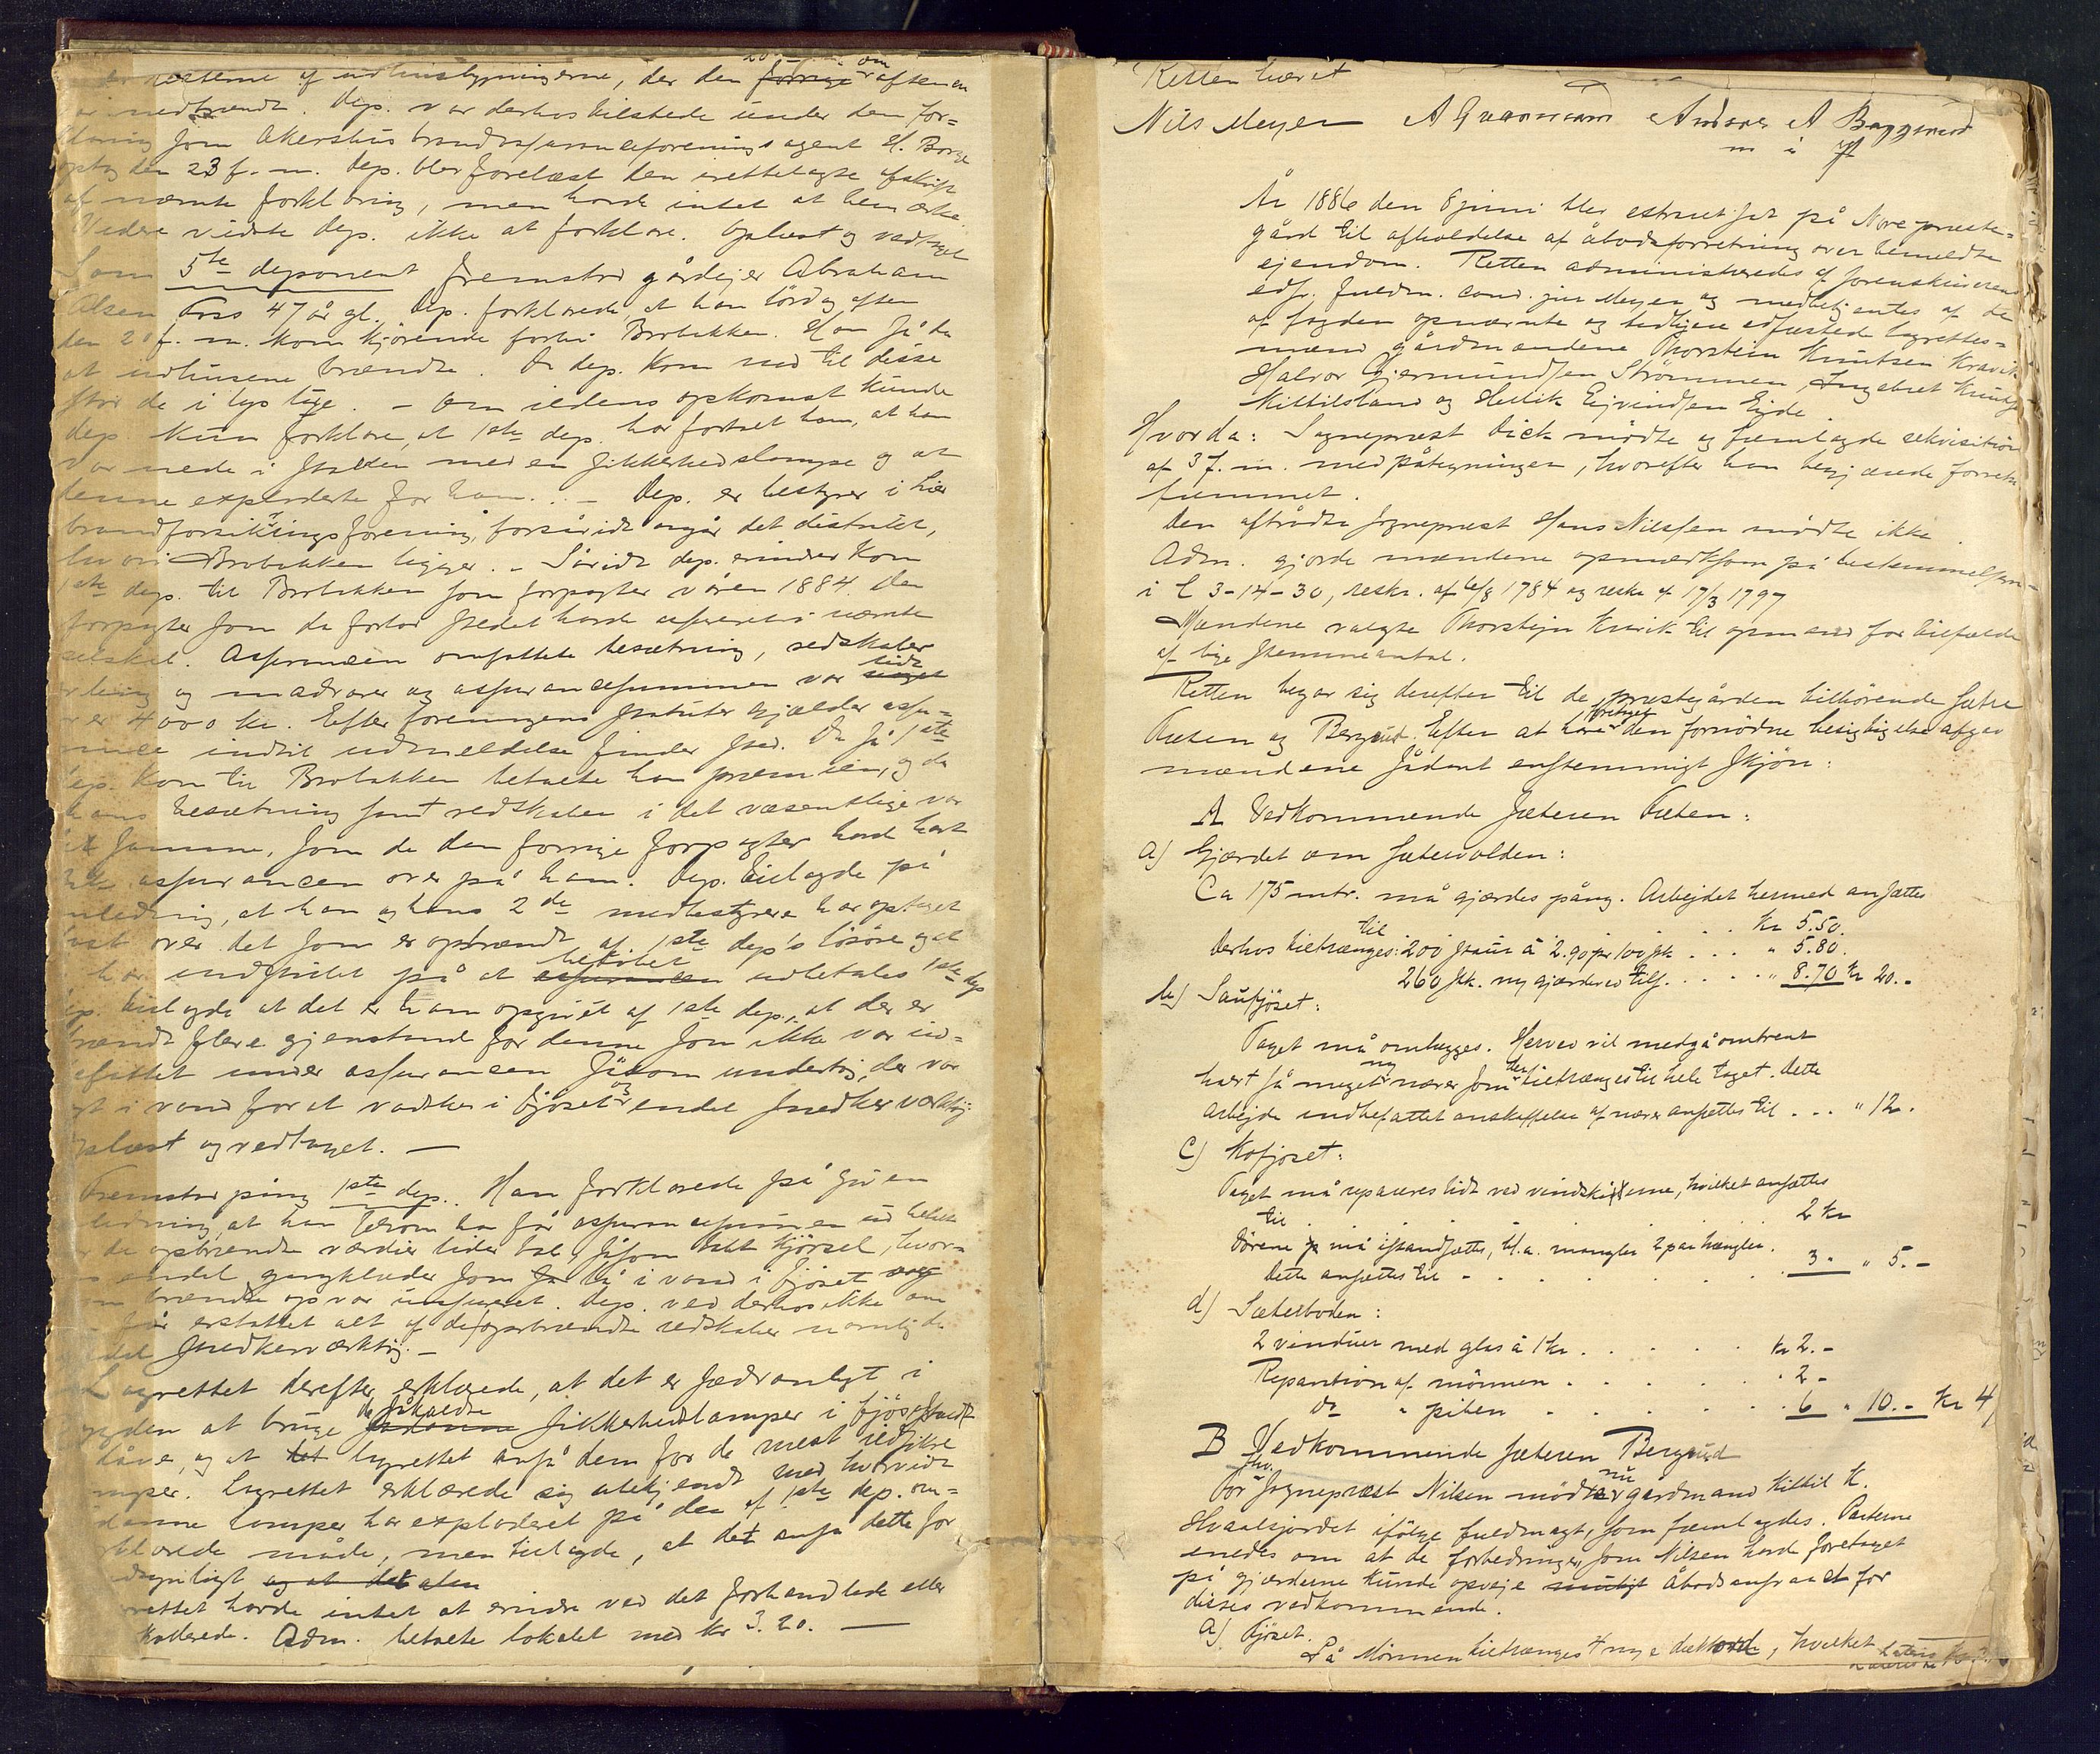 resterne af udhusbygningerne, der den forrige aftenen
nedbrændt. Dep. var derhos tilstede under den for-
klaring som Akershus brandassuranceforenings agent H. Borge
optog den 23 f. m. Dep. blev forelæst den irettelagte afskrift
af nævnte forklaring, men havde intet at bemærke
Videre vidste dep. ikke at forklare. Oplæst og vedtaget
Som 5te deponent fremstod gårdejer Abraham
Olsen Foss 47 år gl. Dep. forklarede, at han lördag aften
den 20 f. m. kom kjörende forbi Brobakken. Han så da
at udhusene brændte. Da dep. kom ned til disse
stod de i lys lue. – Om ildens opkomst kunde
dep. kun forklare, at 1ste dep. har fortalt ham, at han
var nede i stalden med en sikkerhedslampe og at
denne exploderte for ham. – Dep. er bestyrer i Lier
brandforsikringsforening, forsåvidt angår det distrikt,
hvori Brobakken ligger. – Såvidt dep. erindrer kom
1ste dep. til Brobakken som forpagter våren 1884. Den
forpagter som da forlod stedet havde assureret i nævnte
selskab. Assurancen omfattede besætning, redskaber
og madvarer og assurancesummen var lidt
over 4000 kr. Efter foreningens statuter gjælder assu-
rance indtil udmeldelse finder sted. Da så 1ste
dep. kom til Brobakken betalte han præmien, og da
hans besætning samt redskaber i det væsentlige var
det samme, som de den forrige forpagter havde havt
assurancen over på ham. Dep. tilagde på
anledning, at han og hans 2de medbestyrere har optaget
takst over det som er opbrændt af 1ste dep's lösöre og at
har indstillet på at belöbet assurancen udbetales 1ste dep
Dep. tilagde at det er ham opgivet af 1ste dep., at der er
brændt flere gjenstande for denne som ikke var ind-
befattet under assurancen såsom undertöj, der var
lagt i vand for at vaskes i fjöset og endel snedkerværktöj.
Oplæst og vedtaget. –
Fremstod påny 1ste dep. Han forklarede på given
anledning, at han selvom han får assurancesummen udbetalt
for de opbrændte værdier lider tab, såsom tabt kjörsel, hvor-
endel gangklæder som lå i vand i fjöset og
som brændte op var uassureret. Dep. ved derhos ikke om
får erstattet alt af de opbrændte redskaber navnlig da
endel snedkerværktöj. –
Lagrettet derefter erklærede, at det er sædvanligt i
bygden at bruge de såkaldte sådanne sikkerhedslamper i fjös, stald
låve, og at det lagrettet anså dem for de mest ildsikre
lamper. Lagrettet erklærede sig ubekjendt med hvorvidt
sådanne lamper har exploderet på den af 1ste dep. om-
forklarede måde, men tilagde, at det anså dette for
og at det alen
Lagrettet havde intet at erindre ved det forhandlede eller
Adm. betalte lokalet med kr 3.20. –
Retten hævet
Nils Meyer A Gvaarnaas Anders A Baggerud
m i p
År 1886 den 8 juni blev extraret sat på Nore præste-
gård til afholdelse af åbodsforretning over bemeldte
ejendom. Retten administreredes af sorenskriverens
edsv. fuldm. cand. jur Meyer og medbetjentes af de
af fogden opnævnte og tidligere edfæstede lagrettes-
mænd gårdmændene Thorstein Knutsen Kravik
Halvor Gjermundsen Strömmen, Ingebret Knuts
Kittilsland og Hellik Ejvindsen Eide.
Hvorda: Sognepræst Dick mödte og fremlagde rekvisition
af 3 f. m. med påtegninger, hvorefter han begjærede forretn
fremmet.
Den aftrådte sognepræst Hans Nilssen mödte ikke.
Adm. gjorde mændene opmærksom på bestemmelserne
i L 3-14-30, reskr. af 6/8 1784 og reskr af 17/3 1797
Mændene valgte Thorstejn Kravik til opmand for tilfælde
af lige stemmeantal.
Retten begav sig derefter til de præstegården tilhörende sætre
Fæten og Bergerud. Efter at have foretaget den fornödne besigtigelse afgav
mændene sådant enstemmigt skjön:
A Vedkommende sæteren Fæten:
a) Gjærdet om sætervolden:
Ca 175 mtr. må gjærdes påny. Arbejdet hermed ansættes
til . . . kr 5.50.
Derhos tiltrænges: 200 staur à 2.90 pr 100 stk . . . " 5.80.
260 stk. ny gjærdeved tils. . . . . " 8.70 kr 20.-
b) Saufjöset:
Taget må omlægges. Herved vil medgå omtrent
halvt så meget ny næver som der tiltrænges til hele taget. Dette
arbejde indbefattet anskaffelse af næver ansættes til . . . " 12.
c) Kofjöset:
Taget må repareres lidt ved vindskierne, hvilket ansættes
til 2 kr
Dörene må istandsættes, bl. a. mangler 2 par hængsler.
Dette ansættes til . . . . . 3 " " 5.-
d) Sæterboden:
2 vinduer med glas à 1 kr . . . . . kr 2.-
Reparation af mönnen . . . . . " 2 -
do " piben . . . . . 6 " 10.- Kr 4
B Vedkommende sæteren Bergerud
For sognepræst Nilsen mödte nu gårdmand Kittil K.
Hvaalsjordet ifölge fuldmagt, som fremlagdes. Parterne
enedes om at de forbedringer som Nilsen havde foretaget
på gjærderne kunde opveje muligt åbodsansvaret for
disses vedkommende.
a) Fjöset.
På Mönnen tiltrænges 4 nye dækbord, hvilket